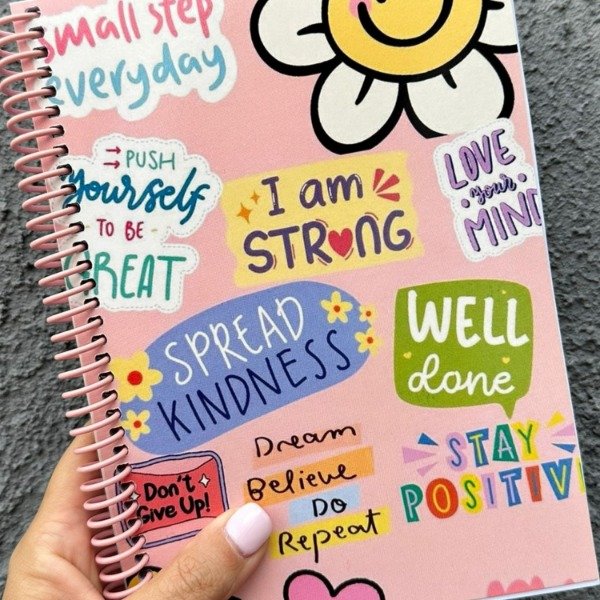 small step
everyday
PUSH
yourself
TO BE
GREAT
I am
STRONG
LOVE
your
MIND
SPREAD
KINDNESS
WELL
done
Don't
Give Up!
Dream
Believe
Do
Repeat
STAY
POSITIV